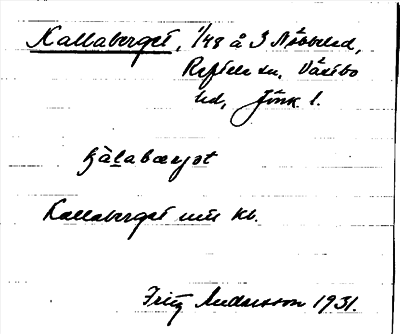 Kallaberget, 1/48 å 3 Nöbbeled,
Reftele sn, Västbo
hd, Jönk l.
Kallaberget
Fritz Andersson 1931.